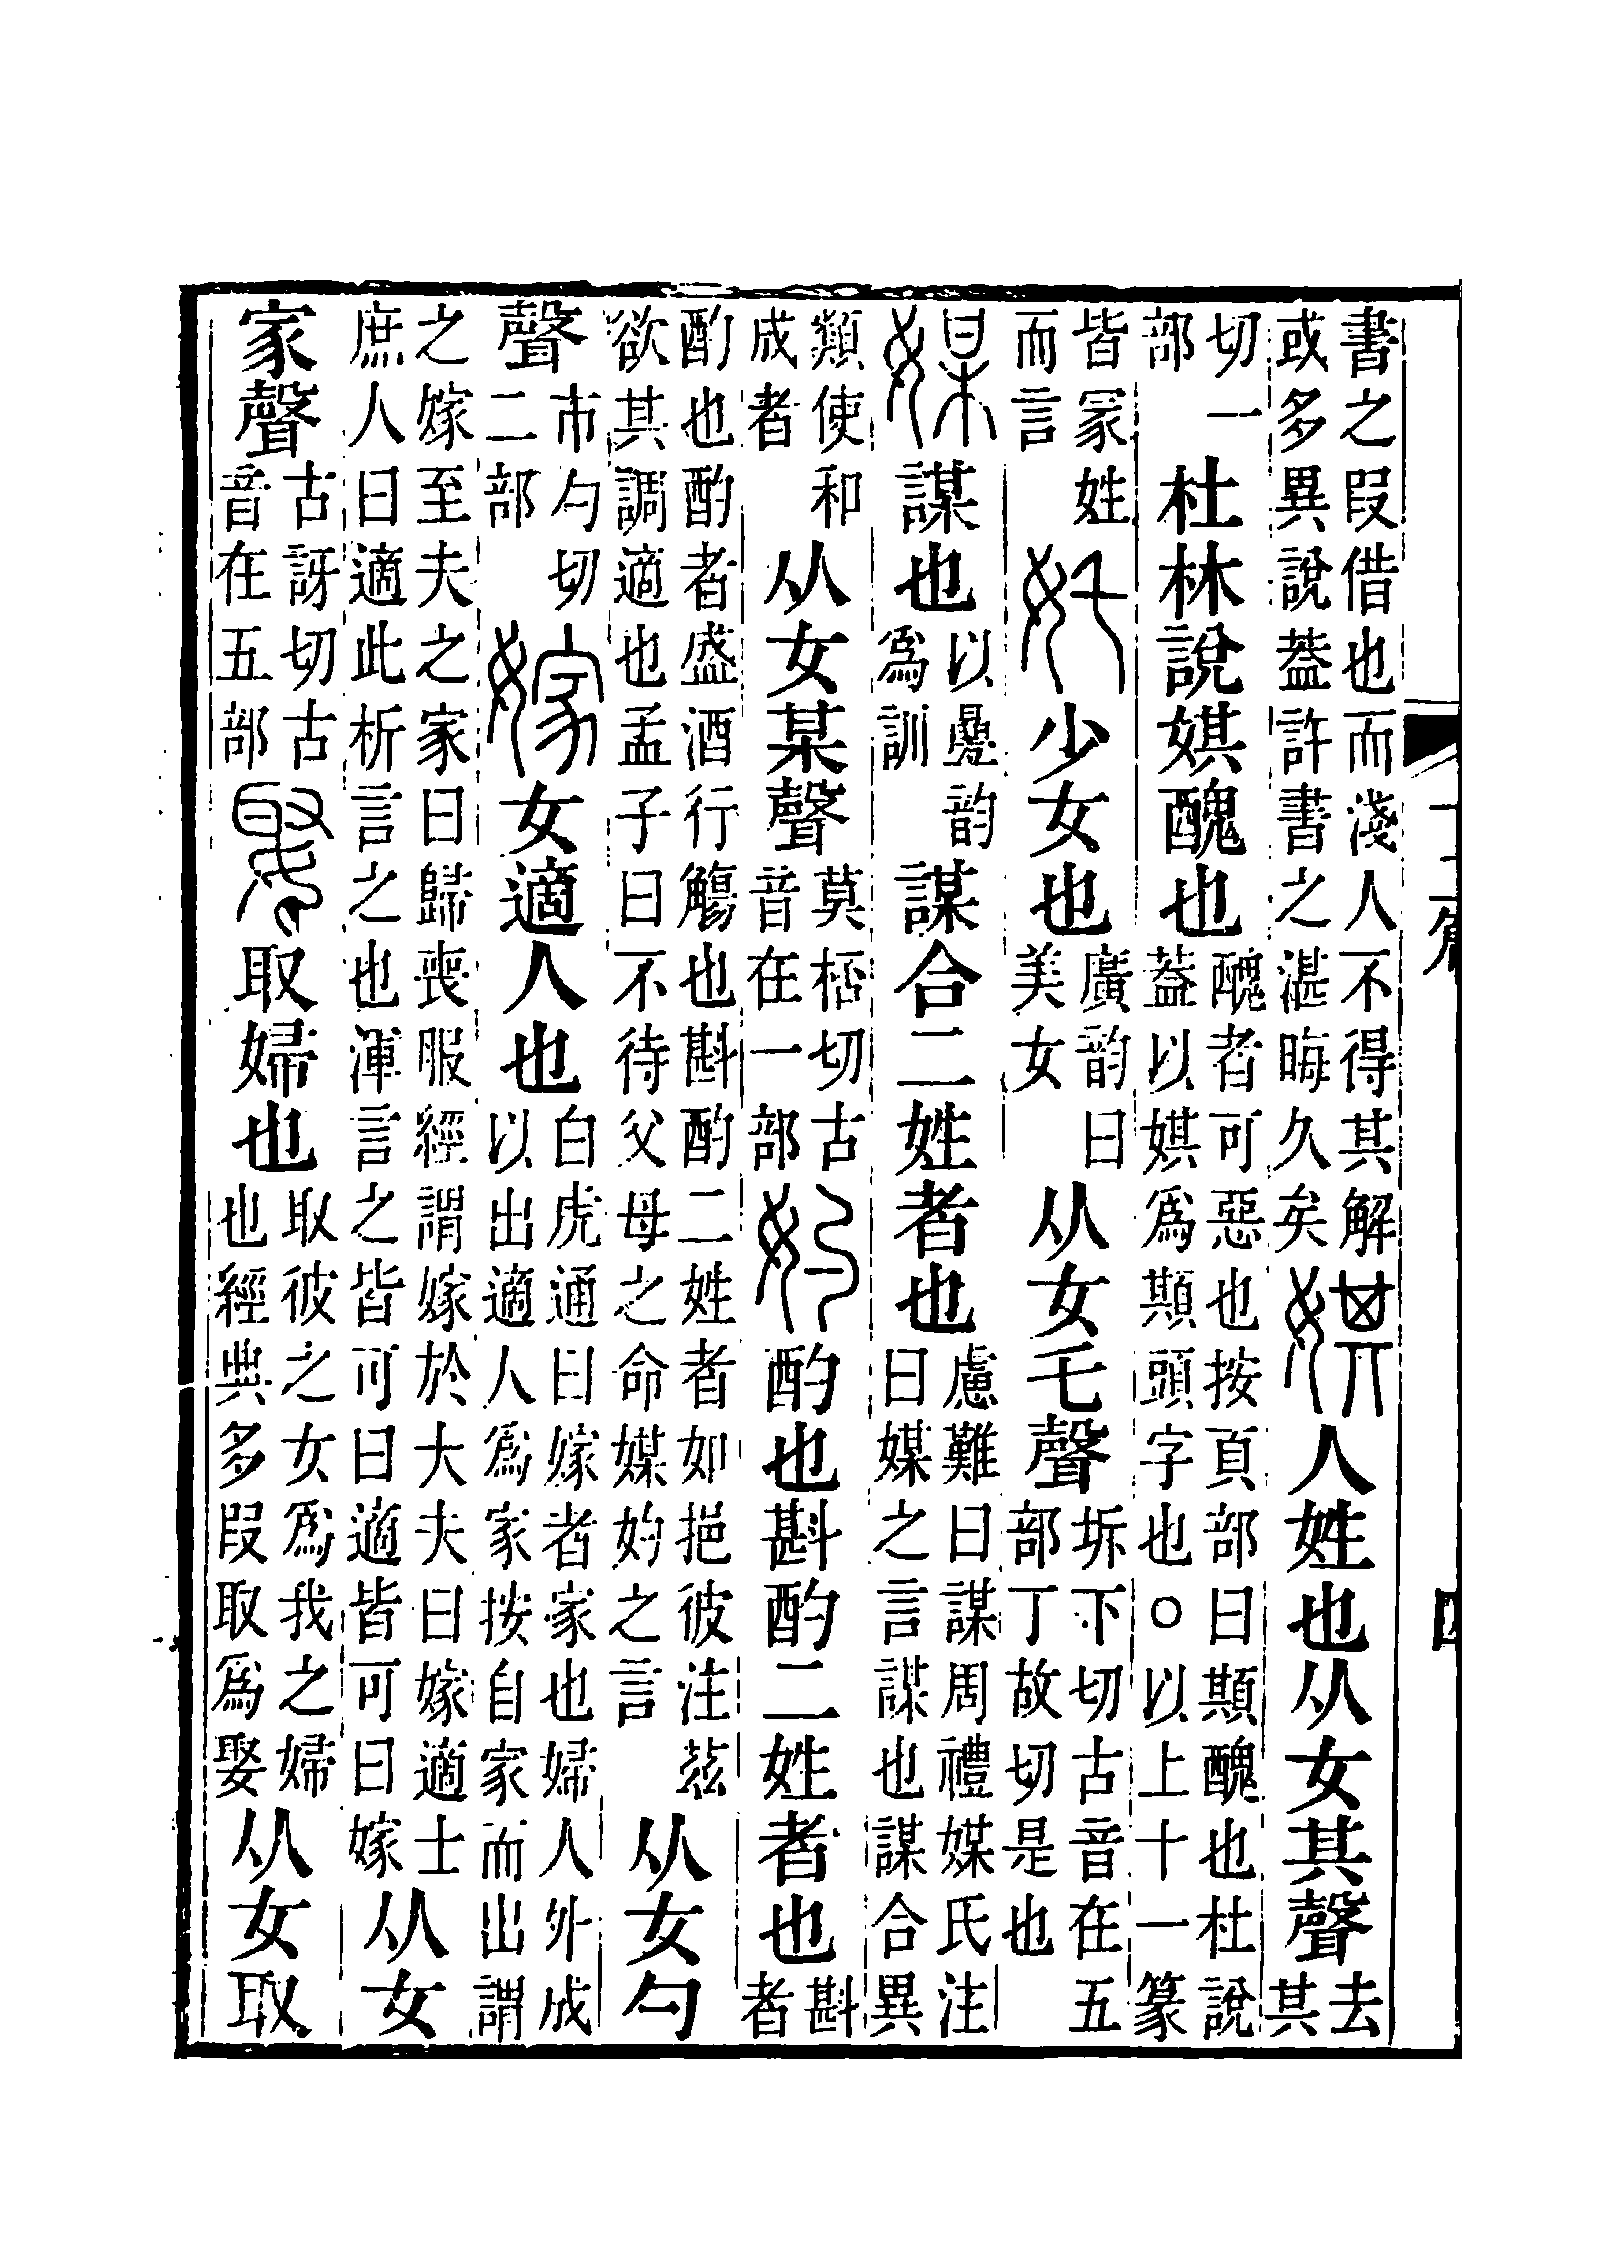 書之叚借也而淺人不得其解或多異說葢許書之湛晦久矣娸人姓也从女其聲去其
切一部杜林說娸醜也醜者可惡也按頁部曰䫏醜也杜說葢以娸爲䫏頭字也○以上十一篆
皆冡姓而言奼少女也廣韵曰美女从女乇聲坼下切古音在五部丁故切是也
媒謀也以曡韵爲訓謀合二姓者也慮難曰謀周禮媒氏注曰媒之言謀也謀合異
類使和成者从女某聲莫桮切古音在一部妁酌也斟酌二姓者也斟者
酌也酌者盛酒行觴也斟酌二姓者如挹彼注茲欲其調適也孟子曰不待父母之命媒妁之言从女勺
聲市勺切二部嫁女適人也白虎通曰嫁者家也婦人外成以出適人爲家按自家而出謂
之嫁至夫之家曰歸喪服經謂嫁於大夫曰嫁適士庶人曰適此析言之也渾言之皆可曰適皆可曰嫁从女
家聲古訝切古音在五部娶取婦也取彼之女爲我之婦也經典多叚取爲娶从女取